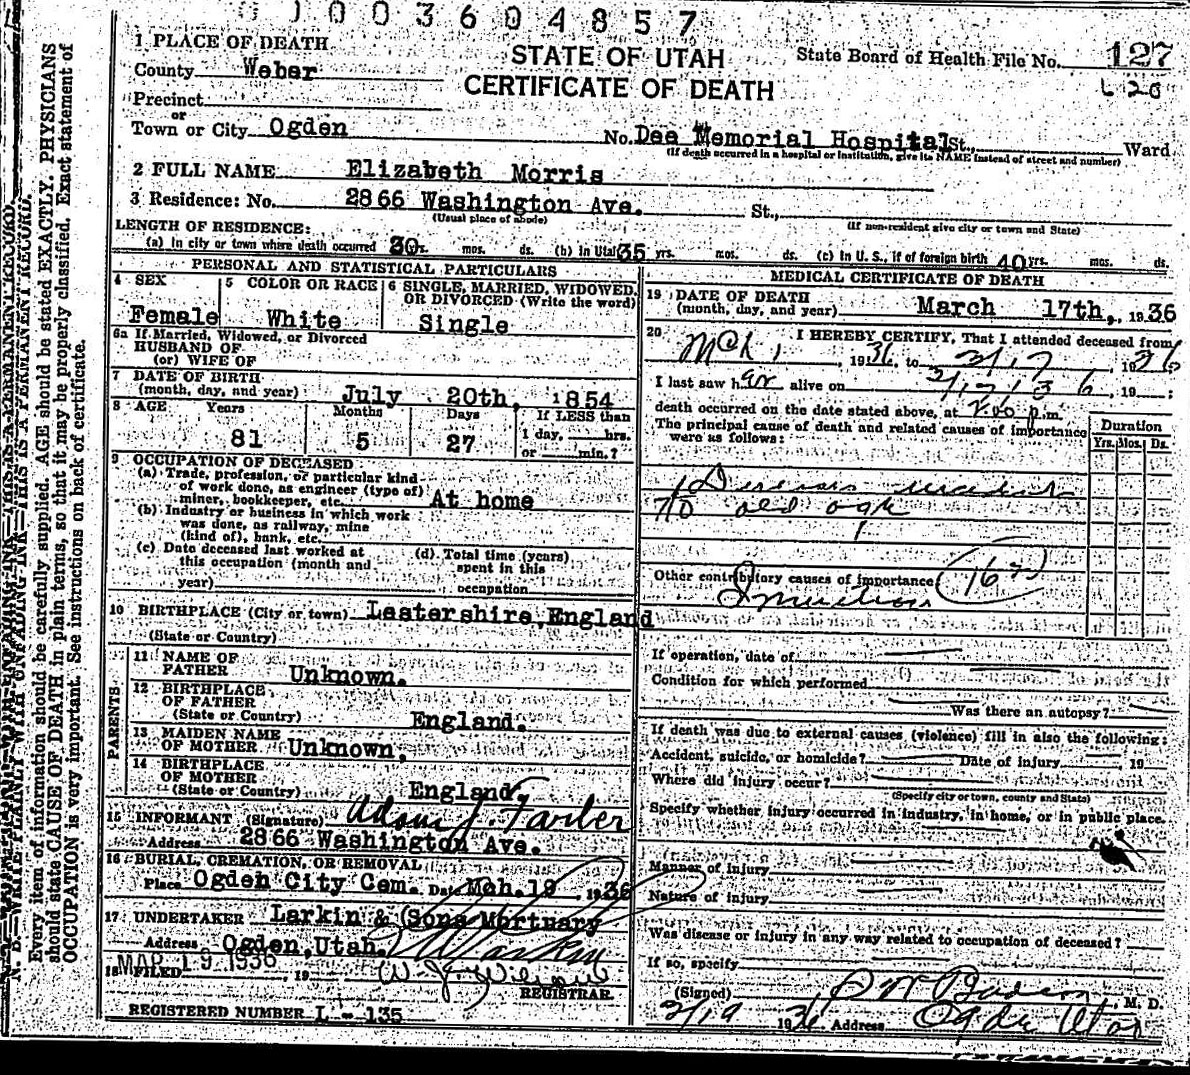 0 1 0 0 3 6 0 4 8 5 7
1 PLACE OF DEATH
STATE OF UTAH
CERTIFICATE OF DEATH
State Board of Health File No. 127
County Weber
Precinct
or
Town or City Ogden No. Dee Memorial Hospital St., Ward
(If death occurred in a hospital or institution, give its NAME instead of street and number)
2 FULL NAME Elizabeth Morris
3 Residence: No. 2866 Washington Ave. St.,
(Usual place of abode) (If non-resident give city or town and State)
LENGTH OF RESIDENCE:
(a) In city or town where death occurred 30 yrs. mos. ds. (b) In Utah 35 yrs. mos. ds. (c) In U. S., if of foreign birth 40 yrs. mos. ds.
PERSONAL AND STATISTICAL PARTICULARS
4 SEX Female
5 COLOR OR RACE White
6 SINGLE, MARRIED, WIDOWED,
OR DIVORCED (Write the word)
Single
6a If Married, Widowed, or Divorced
HUSBAND OF
(or) WIFE OF
7 DATE OF BIRTH
(month, day, and year) July 20th, 1854
8 AGE Years Months Days If LESS than
81 5 27 1 day, hrs.
or min.?
9 OCCUPATION OF DECEASED
(a) Trade, profession, or particular kind
of work done, as engineer (type of)
miner, bookkeeper, etc. At home
(b) Industry or business in which work
was done, as railway, mine
(kind of), bank, etc.
(c) Date deceased last worked at
this occupation (month and
year)
(d) Total time (years)
spent in this
occupation
10 BIRTHPLACE (City or town) Lestershire, England
(State or Country)
PARENTS
11 NAME OF
FATHER Unknown.
12 BIRTHPLACE
OF FATHER
(State or Country) England.
13 MAIDEN NAME
OF MOTHER Unknown.
14 BIRTHPLACE
OF MOTHER
(State or Country) England.
15 INFORMANT (Signature) Adam J. Farber
Address 2866 Washington Ave.
16 BURIAL, CREMATION, OR REMOVAL
Place Ogden City Cem. Date Mch. 19, 1936
17 UNDERTAKER Larkin & Sons Mortuary
Address Ogden, Utah.
18 FILED MAR 19 1936, 19
REGISTRAR.
REGISTERED NUMBER L - 135
MEDICAL CERTIFICATE OF DEATH
19 DATE OF DEATH
(month, day, and year) March 17th, 1936
20 I HEREBY CERTIFY, That I attended deceased from
Mch 1, 1936, to 3/17, 1936
I last saw her alive on 3/17/36, 19 ;
death occurred on the date stated above, at 2.00 p.m.
The principal cause of death and related causes of importance
were as follows:
Duration
Yrs. Mos. Ds.
Diseases incident
to old age
Other contributory causes of importance
If operation, date of
Condition for which performed
Was there an autopsy?
If death was due to external causes (violence) fill in also the following:
Accident, suicide, or homicide? Date of injury, 19
Where did injury occur?
(Specify city or town, county and State)
Specify whether injury occurred in industry, in home, or in public place.
Manner of injury
Nature of injury
Was disease or injury in any way related to occupation of deceased?
If so, specify
(Signed) , M. D.
3/19 1936 Address Ogden Utah
Every item of information should be carefully supplied. AGE should be stated EXACTLY. PHYSICIANS
should state CAUSE OF DEATH in plain terms, so that it may be properly classified. Exact statement of
OCCUPATION is very important. See instructions on back of certificate.